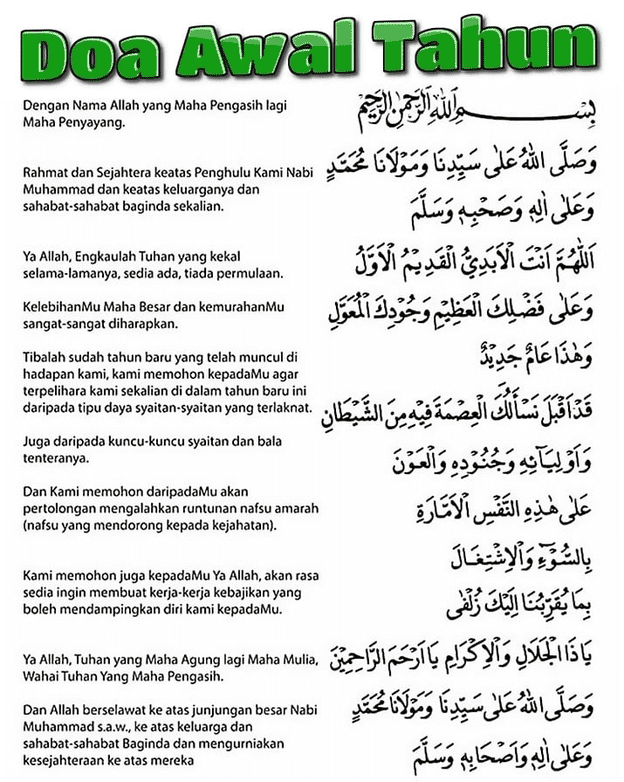 Doa Awal Tahun
Dengan Nama Allah yang Maha Pengasih lagi
Maha Penyayang.
بِسْــــــمِ اللهِ الرَّحْمٰنِ الرَّحِيْمِ
Rahmat dan Sejahtera keatas Penghulu Kami Nabi
Muhammad dan keatas keluarganya dan
sahabat-sahabat baginda sekalian.
وَصَلَّى اللهُ عَلٰى سَيِّدِنَا وَمَوْلَانَا مُحَمَّدٍ
وَعَلٰى اٰلِهٖ وَصَحْبِهٖ وَسَلَّمَ
Ya Allah, Engkaulah Tuhan yang kekal
selama-lamanya, sedia ada, tiada permulaan.
اَللّٰهُمَّ اَنْتَ الْاَبَدِيُّ الْقَدِيْمُ الْاَوَّلُ
KelebihanMu Maha Besar dan kemurahanMu
sangat-sangat diharapkan.
وَعَلٰى فَضْلِكَ الْعَظِيْمِ وَجُوْدِكَ الْمُعَوَّلِ
Tibalah sudah tahun baru yang telah muncul di
hadapan kami, kami memohon kepadaMu agar
terpelihara kami sekalian di dalam tahun baru ini
daripada tipu daya syaitan-syaitan yang terlaknat.
وَهٰذَا عَامٌ جَدِيْدٌ
قَدْ اَقْبَلَ نَسْأَلُكَ الْعِصْمَةَ فِيْهِ مِنَ الشَّيْطَانِ
Juga daripada kuncu-kuncu syaitan dan bala
tenteranya.
وَاَوْلِيَآئِهٖ وَجُنُوْدِهٖ وَالْعَوْنَ
Dan Kami memohon daripadaMu akan
pertolongan mengalahkan runtunan nafsu amarah
(nafsu yang mendorong kepada kejahatan).
عَلٰى هٰذِهِ النَّفْسِ الْاَمَّارَةِ
بِالسُّوْۤءِ وَالْاِشْتِغَالَ
Kami memohon juga kepadaMu Ya Allah, akan rasa
sedia ingin membuat kerja-kerja kebajikan yang
boleh mendampingkan diri kami kepadaMu.
بِمَا يُقَرِّبُنَا اِلَيْكَ زُلْفٰى
Ya Allah, Tuhan yang Maha Agung lagi Maha Mulia,
Wahai Tuhan Yang Maha Pengasih.
يَاذَا الْجَلَالِ وَالْاِكْرَامِ يَا اَرْحَمَ الرَّاحِمِيْنَ
Dan Allah berselawat ke atas junjungan besar Nabi
Muhammad s.a.w., ke atas keluarga dan
sahabat-sahabat Baginda dan mengurniakan
kesejahteraan ke atas mereka
وَصَلَّى اللهُ عَلٰى سَيِّدِنَا وَمَوْلَانَا مُحَمَّدٍ
وَعَلٰى اٰلِهٖ وَاَصْحَابِهٖ وَسَلَّمَ